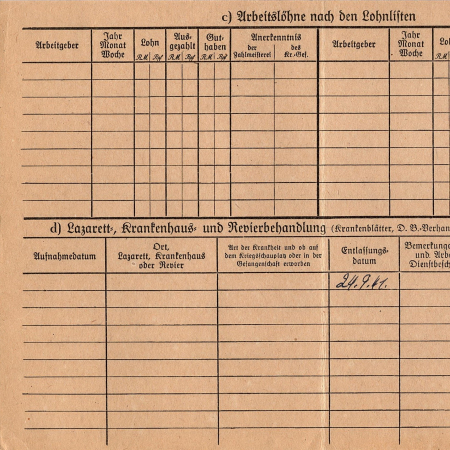 c) Arbeitslöhne nach den Lohnlisten
Arbeitgeber
Jahr
Monat
Woche
Lohn
RM Rpf
Aus-
gezahlt
RM Rpf
Gut-
haben
RM Rpf
Anerkenntnis
der
Zahlmeisterei
des
Kr.-Gef.
Arbeitgeber
Jahr
Monat
Woche
Lo
RM
d) Lazarett-, Krankenhaus- und Revierbehandlung (Krankenblätter, D. B.-Verhan
Aufnahmedatum
Ort,
Lazarett, Krankenhaus
oder Revier
Art der Krankheit und ob auf
dem Kriegsschauplatz oder in der
Gefangenschaft erworben
Entlassungs-
datum
Bemerkunge
und Arb
Dienstbesch
24.9.41.